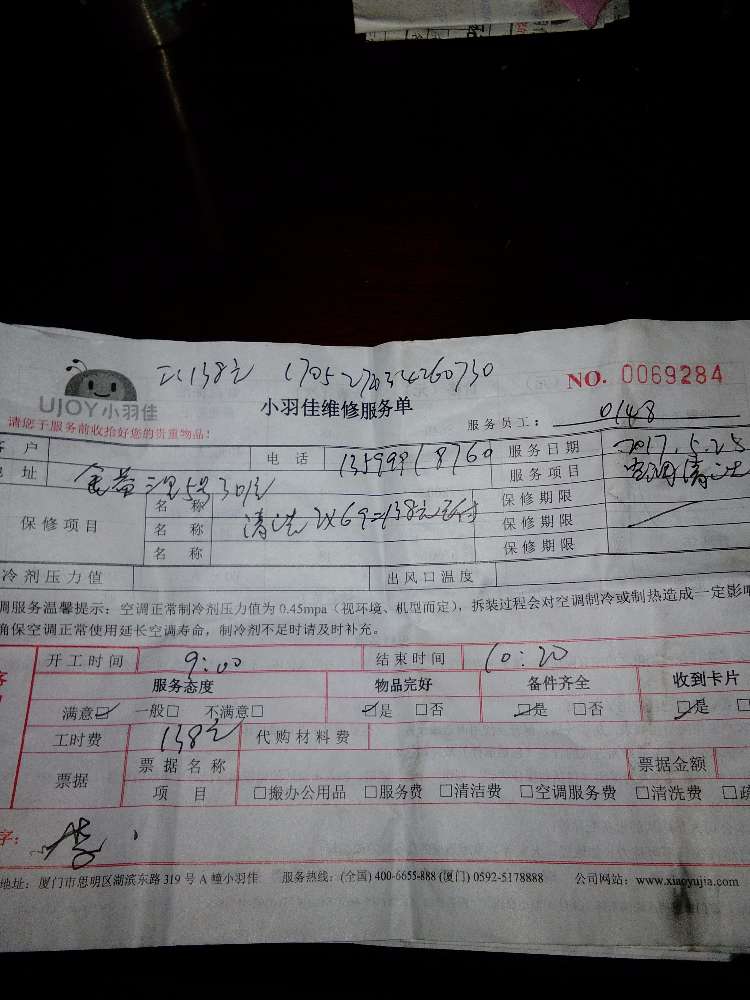 138元 170527034260730
NO. 0069284
UJOY小羽佳
小羽佳维修服务单
请您于服务前收拾好您的贵重物品!
服务员工: 0148
客户 电话 13599918760 服务日期 2017.5.25
地址 金益三里5号301 服务项目 空调清洗
保修项目 名称 保修期限
名称 清洗2×69=138元 保修期限
名称 保修期限
冷剂压力值 出风口温度
调服务温馨提示:空调正常制冷剂压力值为0.45mpa(视环境、机型而定),拆装过程会对空调制冷或制热造成一定影
确保空调正常使用延长空调寿命,制冷剂不足时请及时补充。
开工时间 9:00 结束时间 10:20
服务态度 物品完好 备件齐全 收到卡片
满意☑ 一般□ 不满意□ ☑是 □否 ☑是 □否 ☑是 □
工时费 138元 代购材料费
票据 票据名称 票据金额
项目 □搬办公用品 □服务费 □清洁费 □空调服务费 □清洗费 □疏
字: 李
地址:厦门市思明区湖滨东路319号A幢小羽佳 服务热线:(全国)400-6655-888(厦门)0592-5178888 公司网站:www.xiaoyujia.com